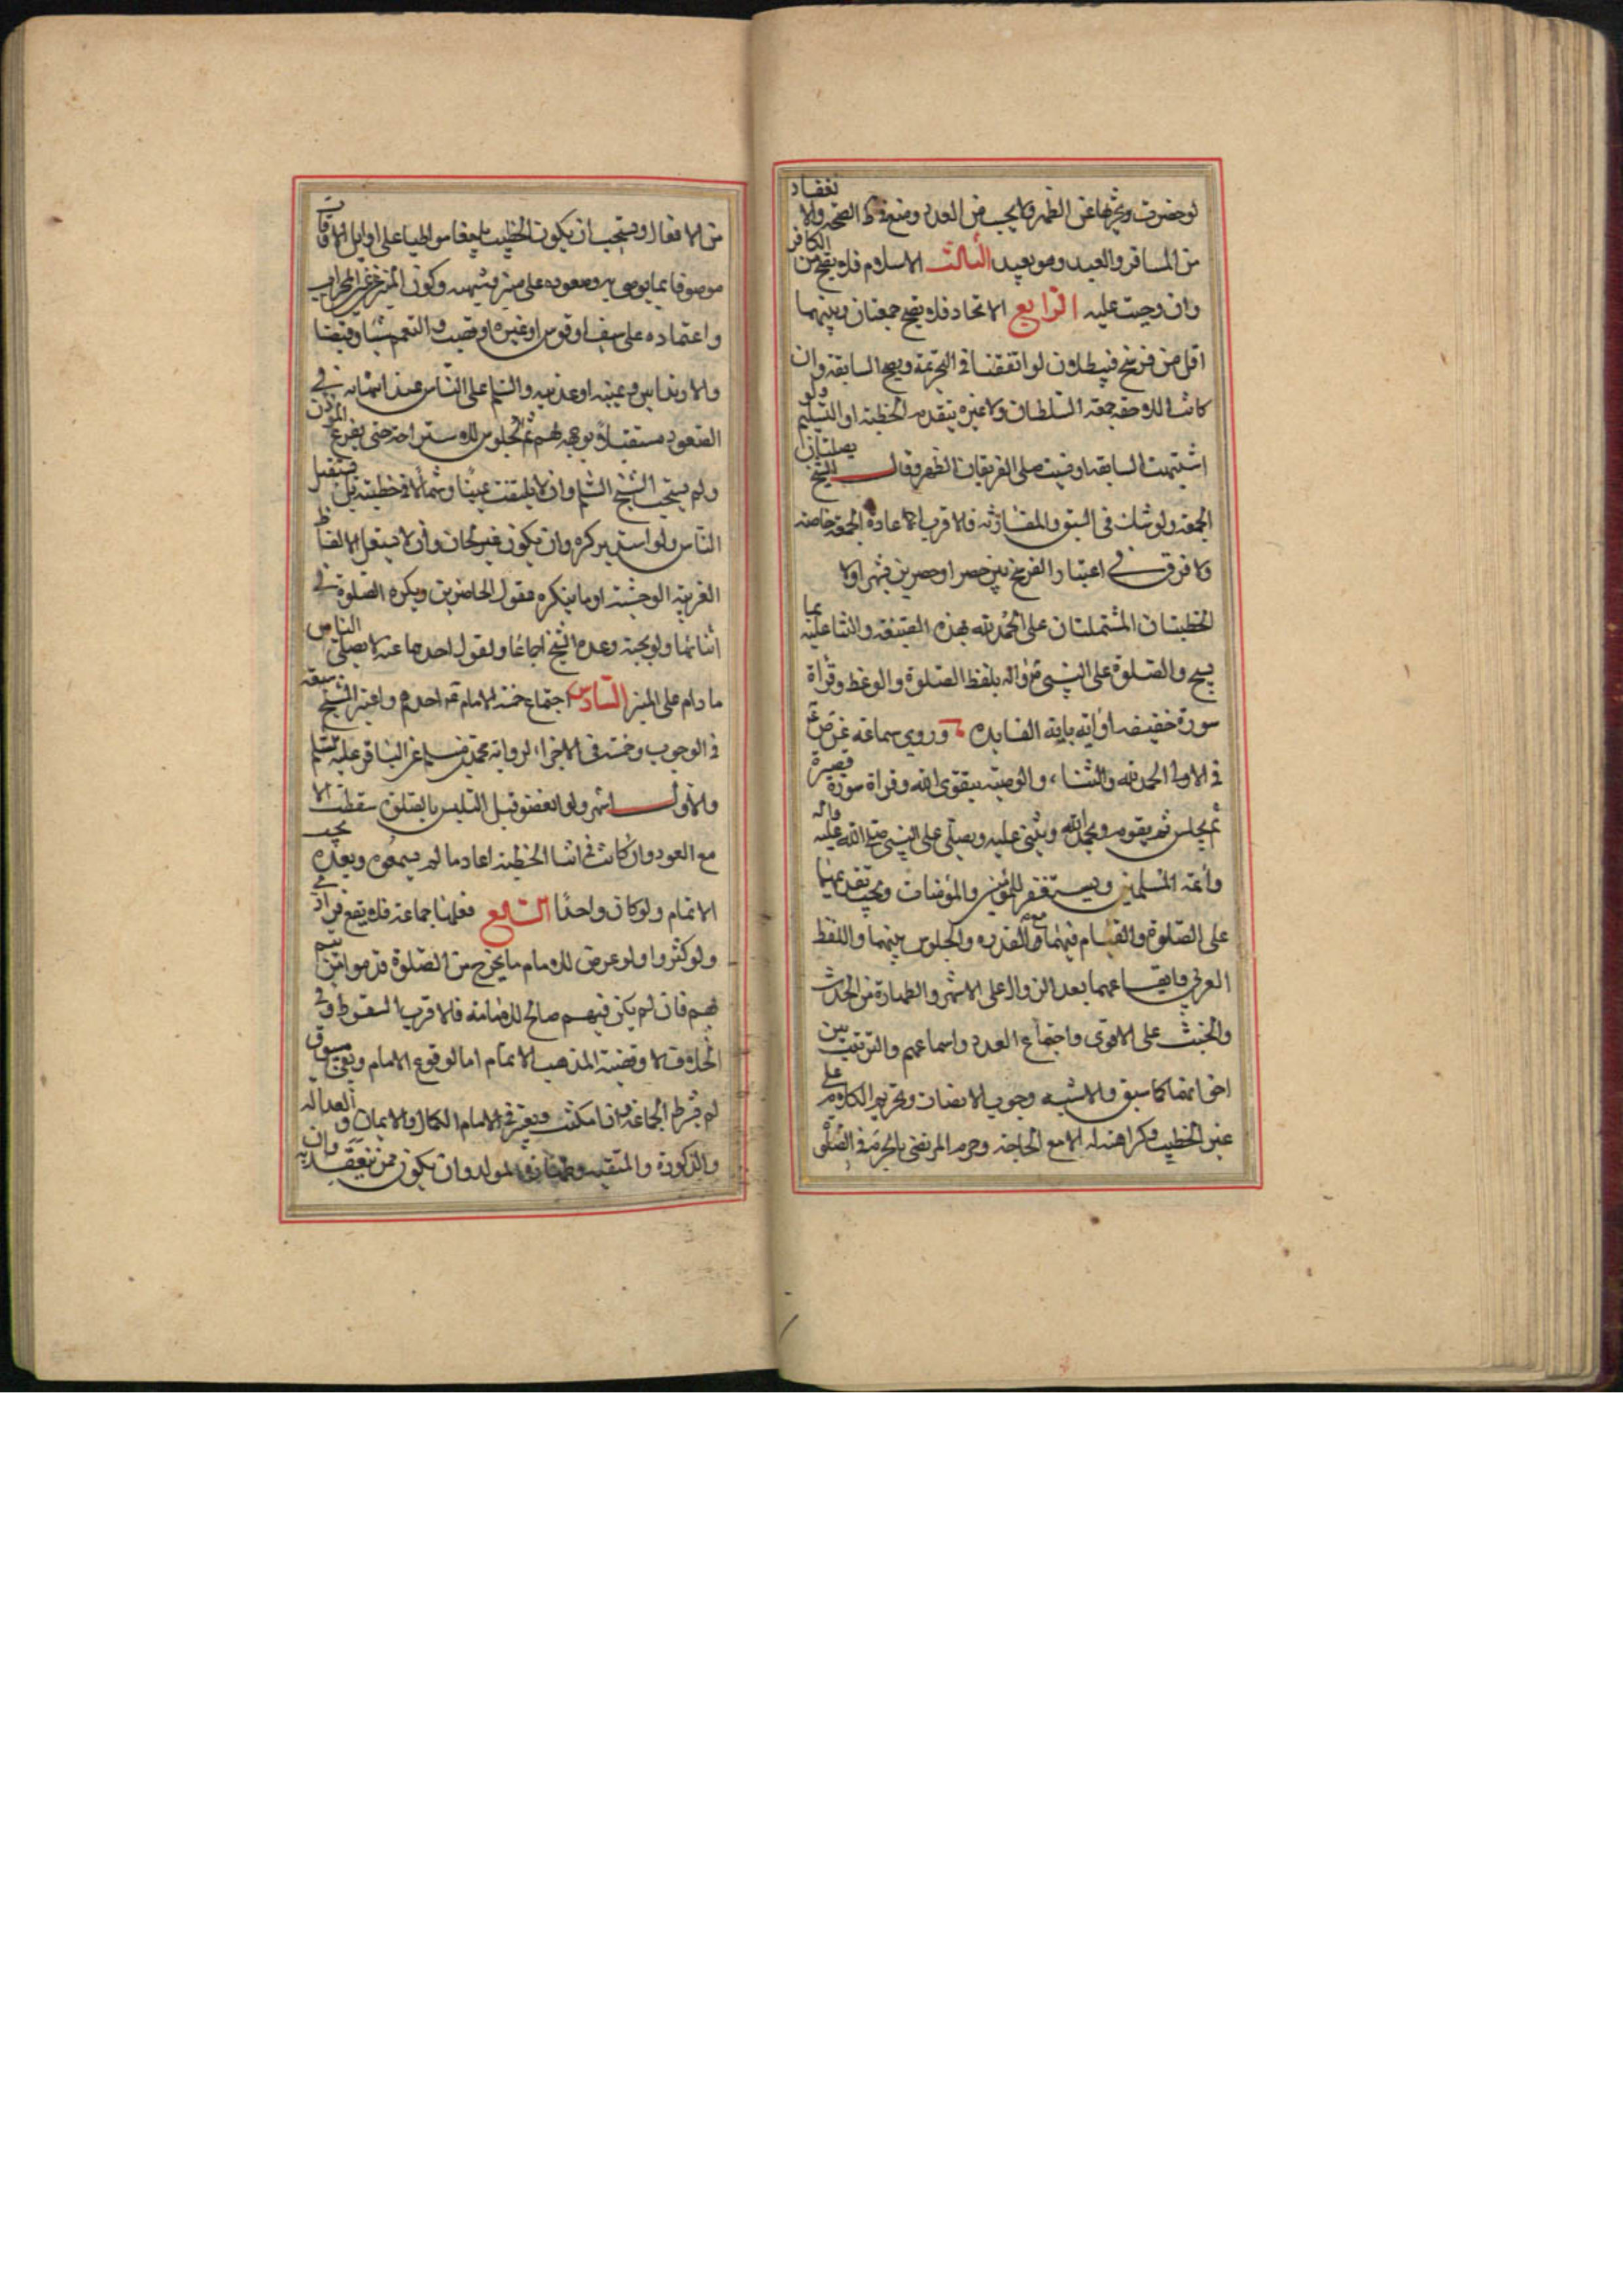 لو حضرت ويجزيها عن الظهر ولا يحسب من العدد ومنع من الصحة والانعقاد
من المسافر والعبد وهو بعيد الثالث الاسلام فلا يصح من الكافر
وان وجبت عليه الرابع الاتحاد فلا يصح جمعتان وبينهما
اقل من فرسخ فيبطلان لو اتفقتا في التحريمة ويصح السابقة وان
كانت اللاحقة جمعة السلطان ولا عبرة بتقدم الخطبة او التسليم ولو
اشتبهت السابقة او نسيت صلى الفريقان الظهر وقال الشيخ يصليان
الجمعة ولو شك في السبق والمقارنة فالاقرب اعادة الجمعة خاصة
ولا فرق في اعتبار الفرسخ بين مصر او مصرين فيهر اولا
الخطبتان المشتملتان على الحمد لله بهذه الصيغة والثنا عليه بما
يسح والصلوة على النبي واله بلفظ الصلوة والوعظ وقراة
سورة خفيفة او اية باية الفايدة وروي سماعة عن ص ع
في الاولى الحمد لله والثناء والوصية بتقوى الله وقراة سورة قصيرة
ثم يجلس ثم يقوم ويحمد الله ويثني عليه ويصلي على النبي صلى الله عليه واله
وائمة المسلمين ويستغفر للمؤمنين والمؤمنات ويجب تقديمهما
على الصلوة والقيام فيهما مع القدره والجلوس بينهما واللفظ
العربي وايقاعهما بعد الزوال على الاشهر والطهارة من الحدث
والخبث على الاقوى واجتماع العدد واسماعهم والترتيب بين
اجزائهما كما سبق والاشبه وجوب الانصات وتحريم الكلام على
غير الخطيب وكراهته له الا مع الحاجة وحرم المرتضى ما يحرم في الصلوة
من الافعال ويستحب ان يكون الخطيب بليغا مواظبا على اوايل الاوقات
موصوفا بما يوصي به وصعوده على منبر وكون المنبر عن المحراب
واعتماده على سيف او قوس او غيره او قضيب والتعمم شتا وقيضا
والارتدا ببرد يمنية او عدنية والتسليم على الناس عند انتهائه في
الصعود مستقبلا بوجهه لهم ثم الجلوس للاستراحة حتى يفرغ المؤذن
ولم يستحب الشيخ التسليم وان لا يلتفت يمينا وشمالا في خطبته بل يستقبل
الناس ولو استدبر كره وان يكون غير لحان وان لا يستعمل الالفاظ
الغريبة الوحشية او ما ينكره عقول الحاضرين ويكره الصلوة في
اثنائها ولو بحية وعده الشيخ اجماعا ولقول احدهما ع لا يصلي الناس
ما دام على المنبر السادس اجتماع خمسة الامام احدهم واعتبر الشيخ سبعة
في الوجوب وخمسة في الاجزاء لرواية محمد بن مسلم عن الباقر عليه السلم
والاول اشهر ولو انفضوا قبل التلبس بالصلوة سقطت الا
مع العود وان كانت في اثنا الخطبة اعاد ما لم يسمعوه وبعده يجب
الاتمام ولو كان واحدا السابع فعلها جماعة فلا يقع فرادى
ولو كثروا ولو عرض للامام ما يخرج من الصلوة قدموا من يتم
بهم فان لم يكن فيهم صالح للامامة فالاقرب السقوط وفي
الخلاف الا وقضية المذهب الاتمام اما لو وقع الامام وبقي مسبوق
لم يشترط الجماعة وان امكنت ويعتبر في الامام الكمال والايمان والعدالة
والذكورة وطهارة المولد وان يكون ممن تنعقد به وان